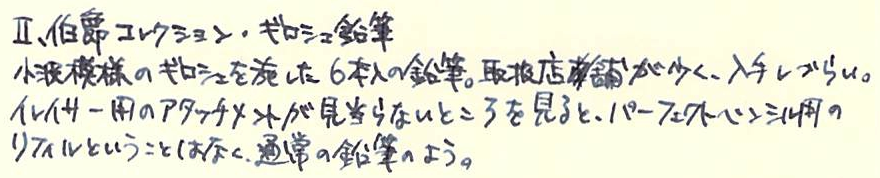 Ⅱ、伯爵コレクション・ギロシェ鉛筆
小波模様のギロシェを施した6本入の鉛筆。取扱店舗が少く、入手しづらい。
イレイサー用のアタッチメントが見当らないところを見ると、パーフェクトペンシル用の
リフィルということはなく、通常の鉛筆のよう。